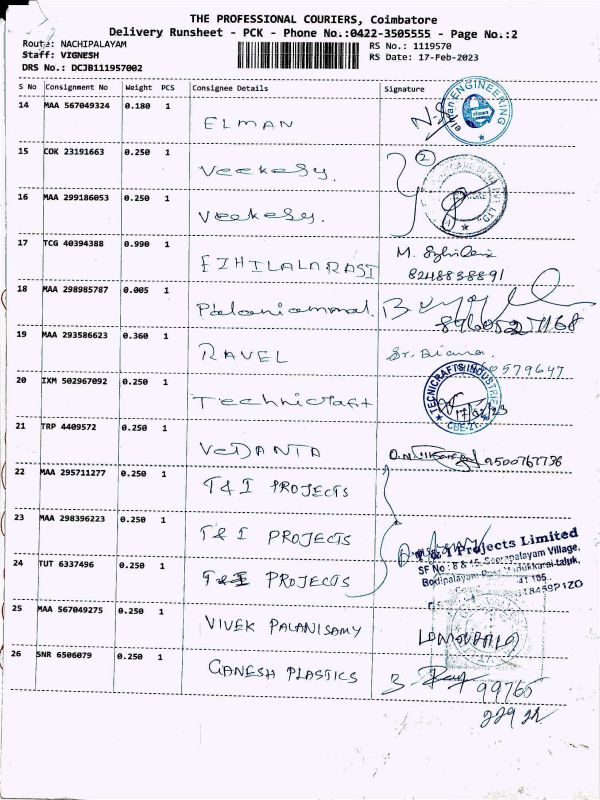 THE PROFESSIONAL COURIERS, Coimbatore
Delivery Runsheet - PCK - Phone No.:0422-3505555 - Page No.:2
Route: NACHIPALAYAM
Staff: VIGNESH
DRS No.: DCJB111957002
RS No.: 1119570
RS Date: 17-Feb-2023
S No Consignment No Weight PCS Consignee Details Signature
14 MAA 567049324 0.180 1 ELMAN
elman ENGINEERING
15 COK 23191663 0.250 1 Veekesy. 2
16 MAA 299186053 0.250 1 Veekesy.
17 TCG 40394388 0.990 1 EZHILALARASI M.
8248838891
18 MAA 298985787 0.005 1 Palaniammal.
19 MAA 293586623 0.360 1 RAVEL
20 IXM 502967092 0.250 1 Technicraft
TECNICRAFTS INDUSTRIES
17/02/23
CBE-21
21 TRP 4409572 0.250 1 VEDANTA 9500767736
22 MAA 295711277 0.250 1 T&I PROJECTS
23 MAA 298396223 0.250 1 T&I PROJECTS
T & I Projects Limited
24 TUT 6337496 0.250 1 T&I PROJECTS
25 MAA 567049275 0.250 1 VIVEK PALANISAMY
26 SNR 6506079 0.250 1 GANESH PLASTICS
99765